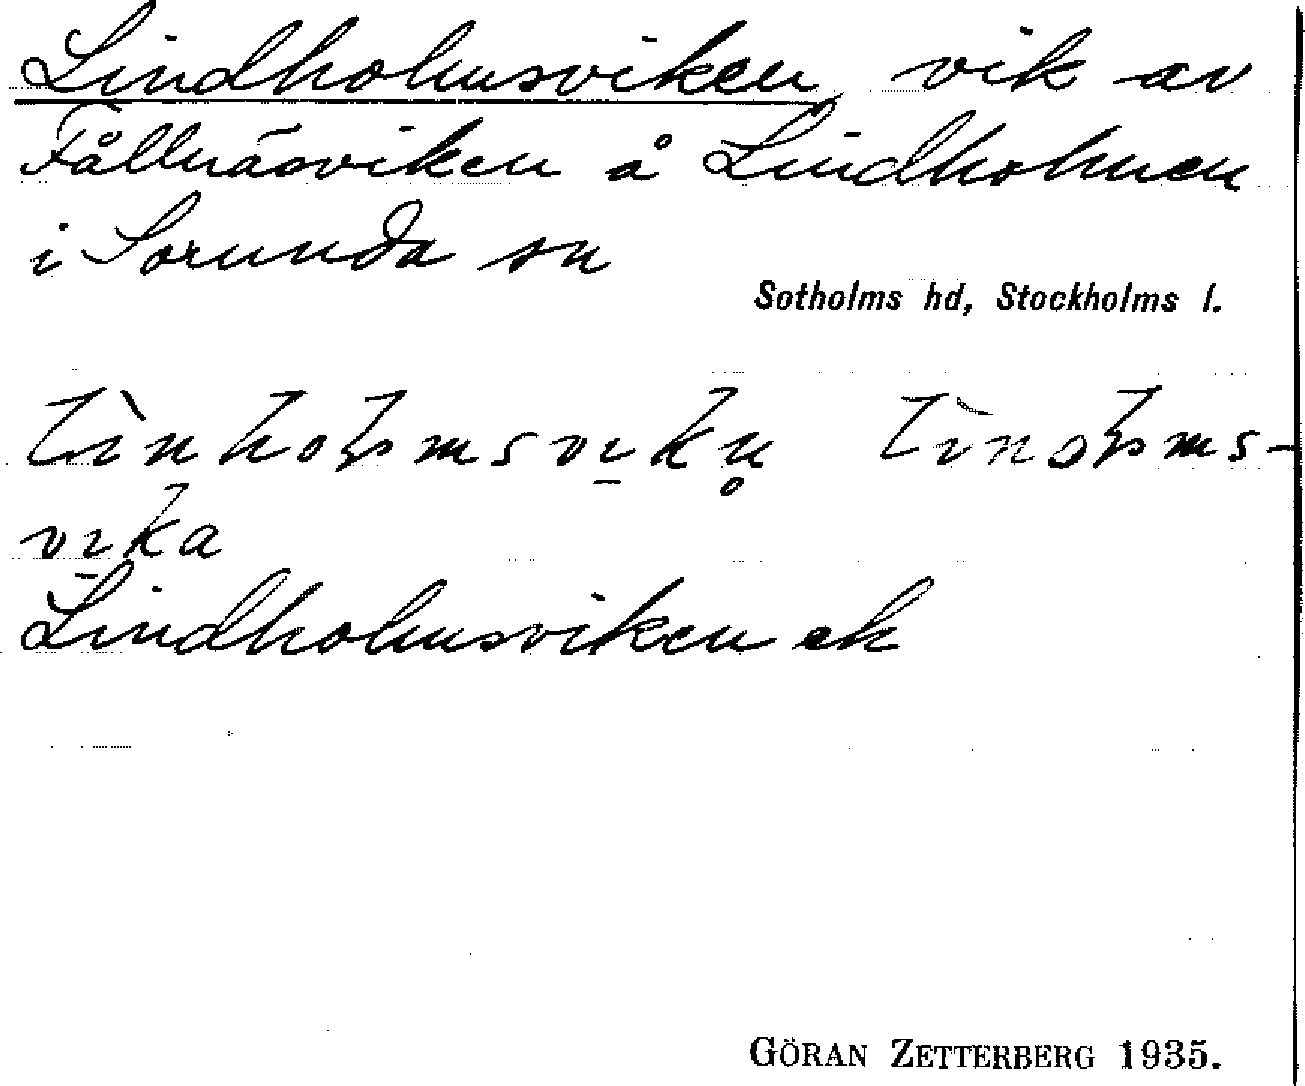 Lindholmsviken, vik av
Fållnäsviken å Lindholmen
i Sorunda sn
Sotholms hd, Stockholms l.
Lindholmsviken ek
GÖRAN ZETTERBERG 1935.